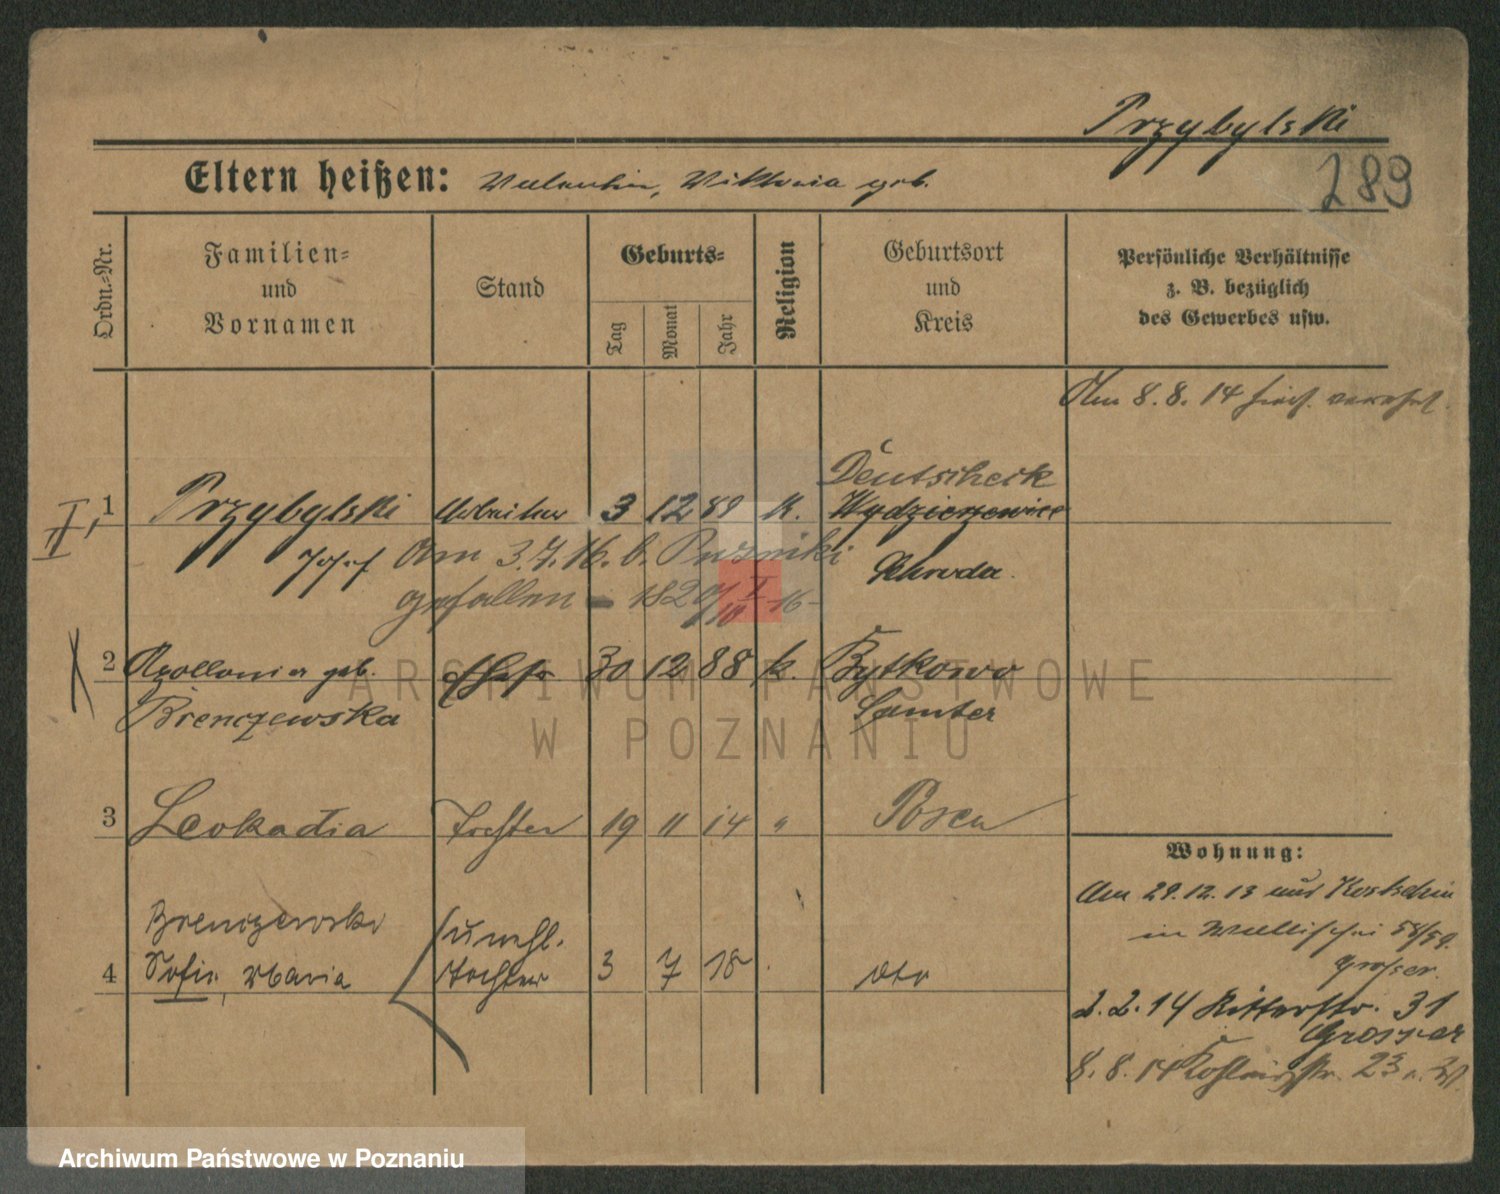 Przybylski
289
Eltern heißen: Valentin, Viktoria geb.
Ordn.-Nr.
Familien- und Vornamen
Stand
Geburts-
Tag
Monat
Jahr
Religion
Geburtsort und Kreis
Persönliche Verhältnisse z. B. bezüglich des Gewerbes usw.
Am 8.8.14 hies.
II, 1 Przybylski Arbeiter 3 12 89 K. Deutscheck
Wydzierzewice
Josef Am 3.7.16. b. Schroda.
gefallen - 16
X 2 Apollonia geb. Ehefr. 30 12 88 k. Bytkowo
Brenczewska Samter
3 Leokadia Tochter 19 11 14 " Posen
Brenczewski unehl.
4 Sofie, Maria Tochter 3 7 18 dto
Wohnung:
Am 29.12.13 aus Kostschin
in Wallischei 58/59.
Grosser.
2.2.14 Ritterstr. 31
Grosser
8.8.14 23
ARCHIWUM PAŃSTWOWE
W POZNANIU
Archiwum Państwowe w Poznaniu